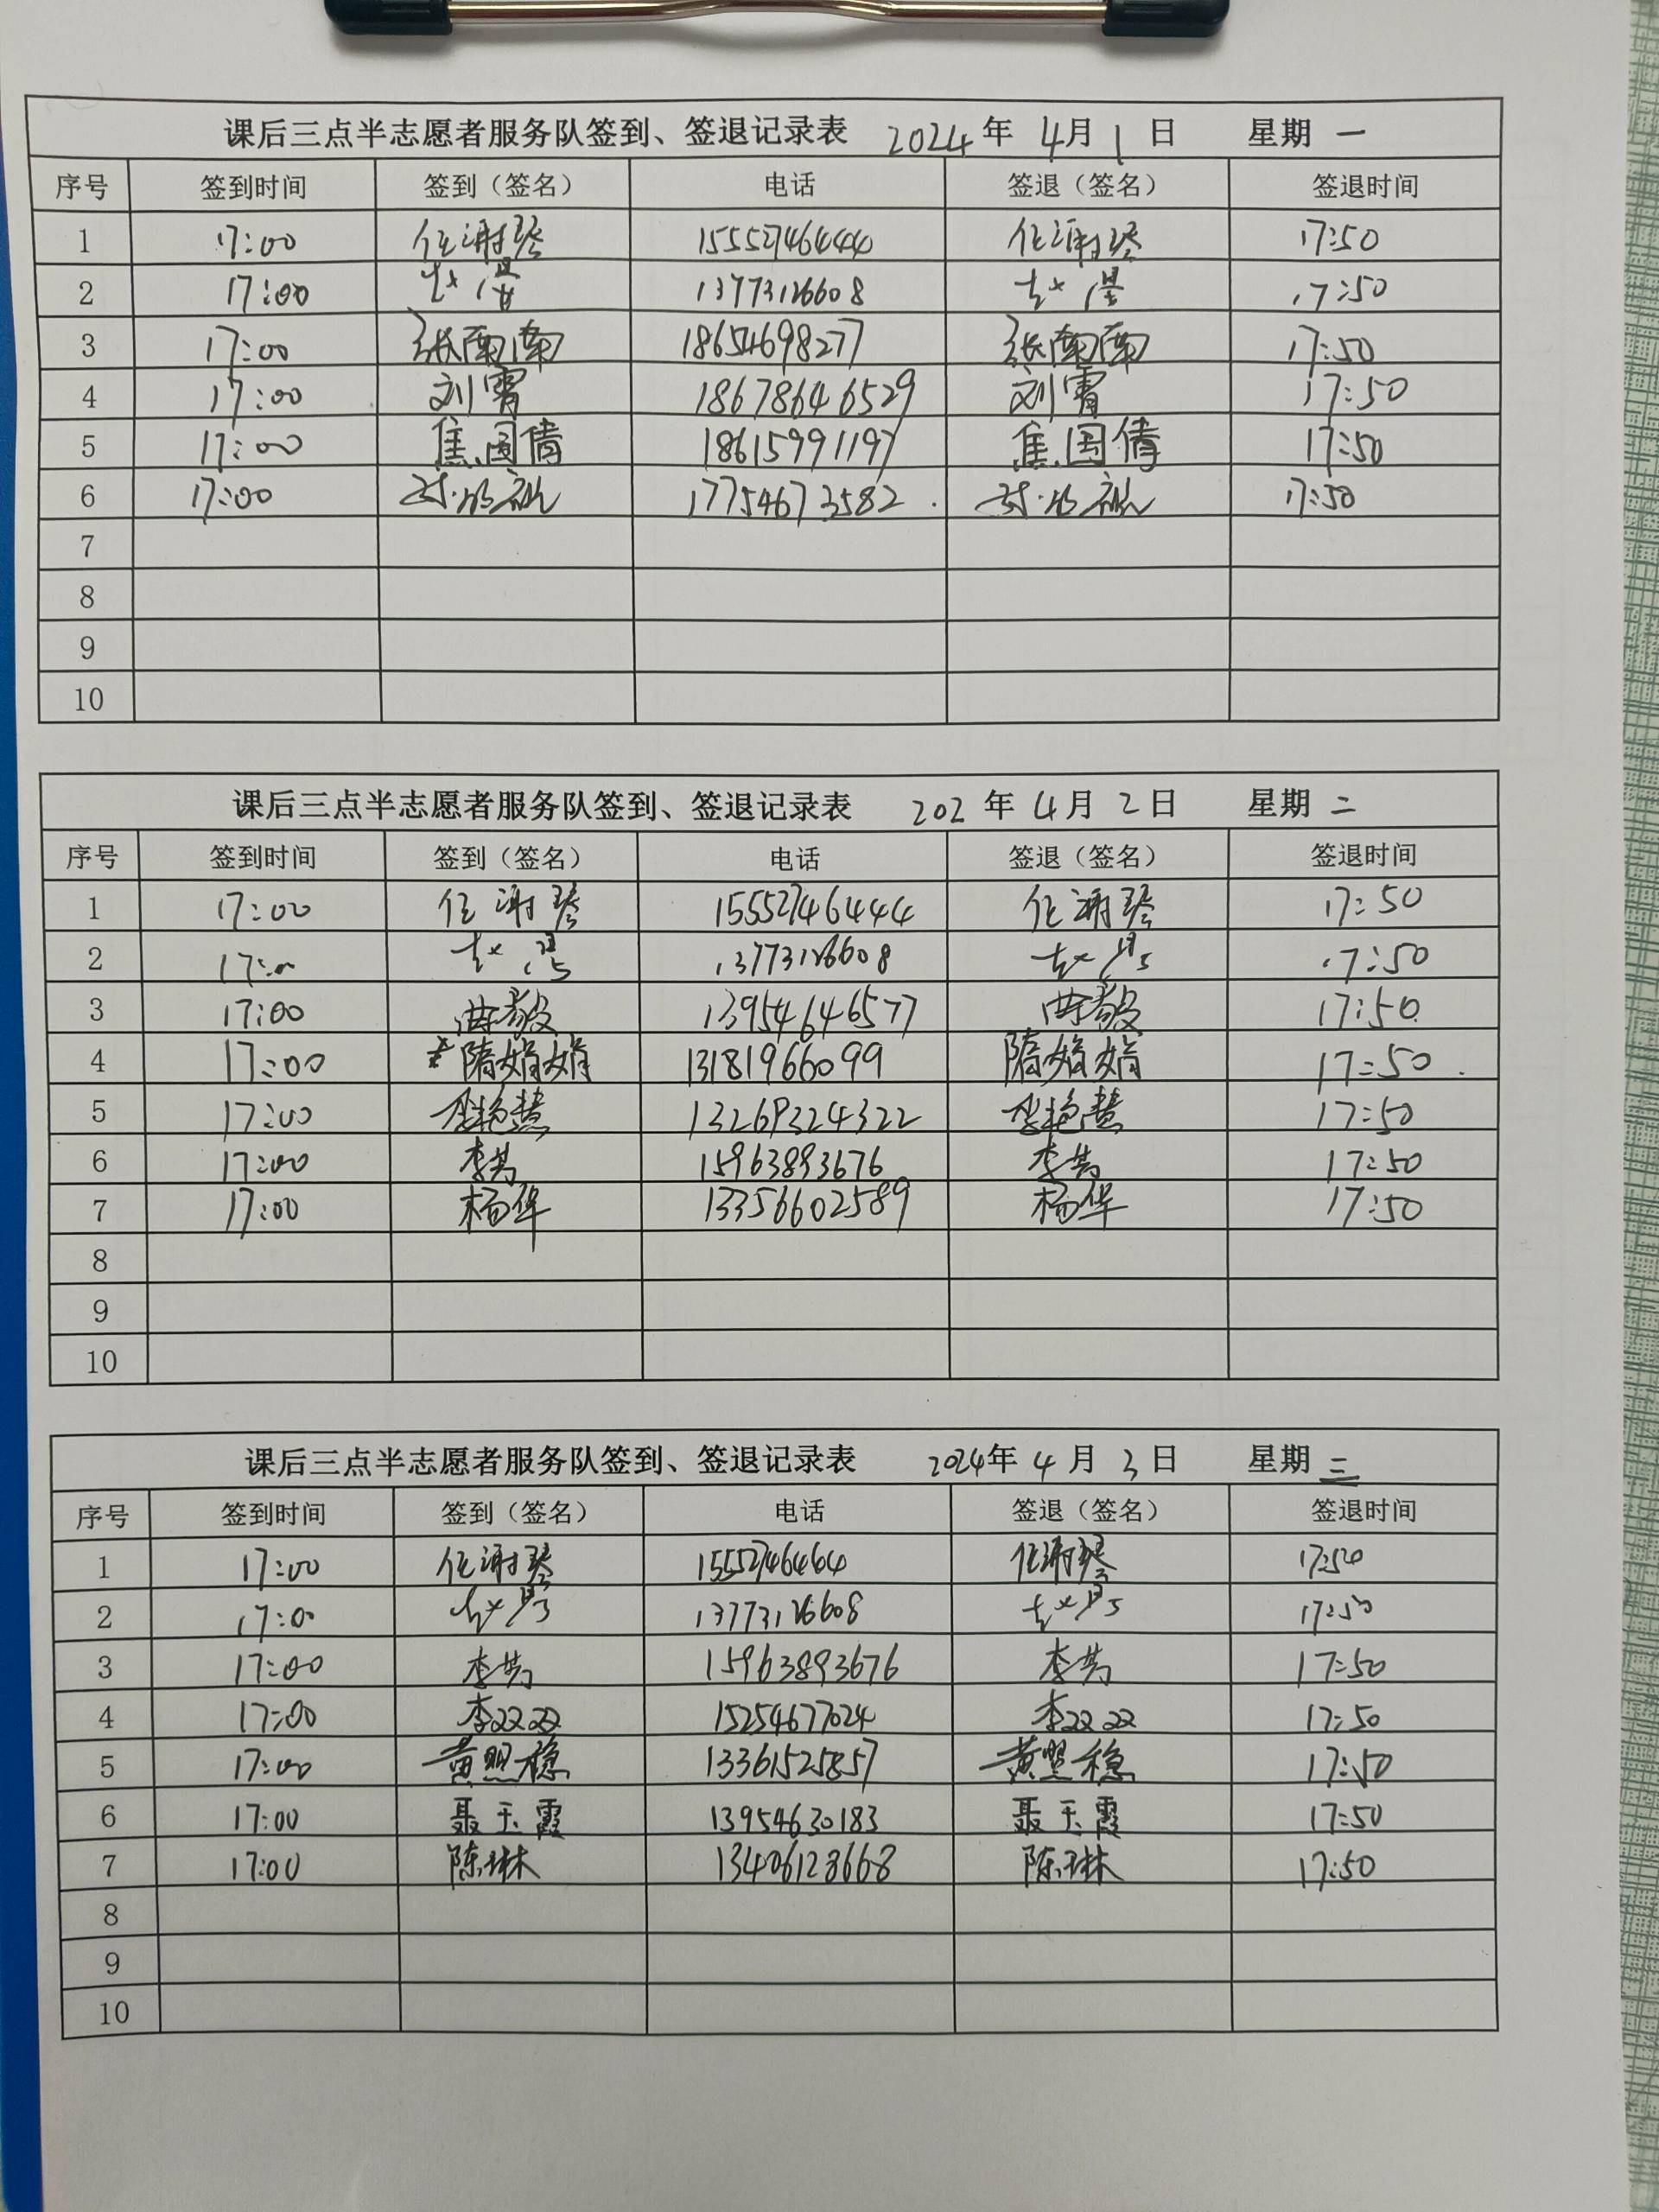 课后三点半志愿者服务队签到、签退记录表 2024年 4月 1日 星期 一
序号 签到时间 签到（签名） 电话 签退（签名） 签退时间
1 17:00 任谢琴 15552746444 任谢琴 17:50
2 17:00 13773126608 17:50
3 17:00 张南南 18654698277 张南南 17:50
4 17:00 刘霄 18678646529 刘霄 17:50
5 17:00 焦国倩 18615991197 焦国倩 17:50
6 17:00 17754673582 17:50
7
8
9
10
课后三点半志愿者服务队签到、签退记录表 202 年 4月 2日 星期 二
序号 签到时间 签到（签名） 电话 签退（签名） 签退时间
1 17:00 任谢琴 15552746444 任谢琴 17:50
2 13773126608 17:50
3 17:00 曲毅 13954646577 曲毅 17:50
4 17:00 隋娟娟 13181966099 隋娟娟 17:50
5 17:00 李艳慧 13269324322 李艳慧 17:50
6 17:00 15963893676 17:50
7 17:00 杨华 13356602589 杨华 17:50
8
9
10
课后三点半志愿者服务队签到、签退记录表 2024年 4月 3日 星期 三
序号 签到时间 签到（签名） 电话 签退（签名） 签退时间
1 17:00 任谢琴 任谢琴 17:50
2 17:00 13773126608 17:50
3 17:00 15963893676 17:50
4 17:00 李双双 15254677024 李双双 17:50
5 17:00 黄照稳 13361525857 黄照稳 17:50
6 17:00 聂玉霞 13954630183 聂玉霞 17:50
7 17:00 陈琳 13406123668 陈琳 17:50
8
9
10